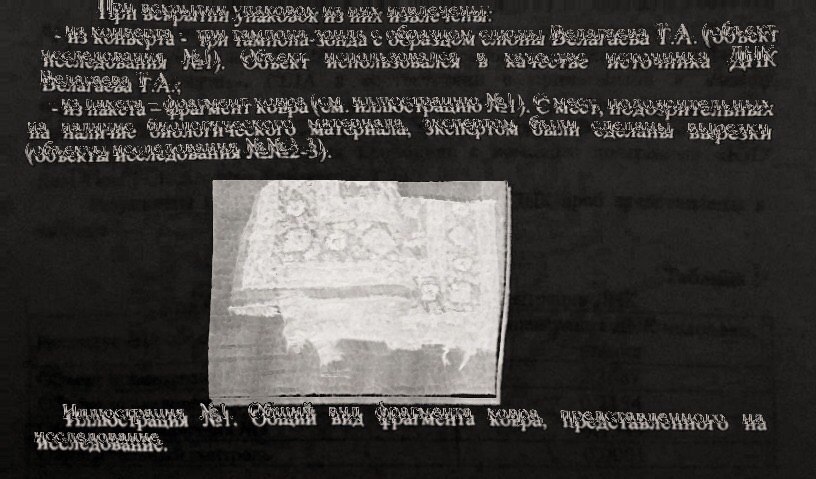 При вскрытии упаковок из них извлечены:
- из конверта - три тампона-зонда с образцом слюны Велагаева Т.А. (объект
исследования №1). Объект использовался в качестве источника ДНК
Велагаева Т.А.;
- из пакета – фрагмент ковра (см. иллюстрацию №1). С мест, подозрительных
на наличие биологического материала, экспертом были сделаны вырезки
(объекты исследования №№2-3).
Иллюстрация №1. Общий вид фрагмента ковра, представленного на
исследование.